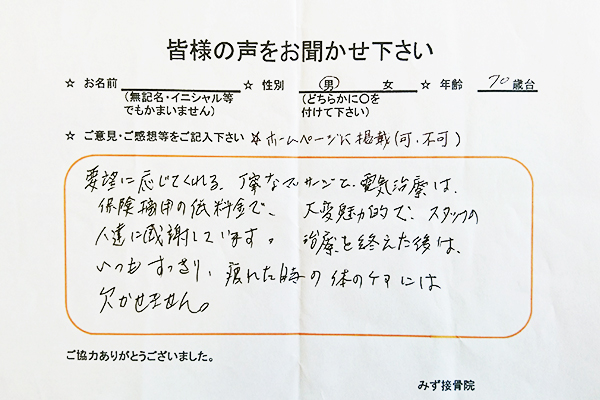 皆様の声をお聞かせ下さい
☆ お名前 ☆ 性別 男 女 ☆ 年齢 70 歳台
(無記名・イニシャル等 (どちらかに〇を
でもかまいません) 付けて下さい)
☆ ご意見・ご感想等をご記入下さい ☆ホームページに掲載(可・不可)
要望に応じてくれる、丁寧なマッサージと、電気治療は、
保険適用の低料金で、大変魅力的で、スタッフの
人達に感謝しています。 治療を終えた後は、
いつもすっきり、疲れた時の体のケアには
欠かせません。
ご協力ありがとうございました。
みず接骨院